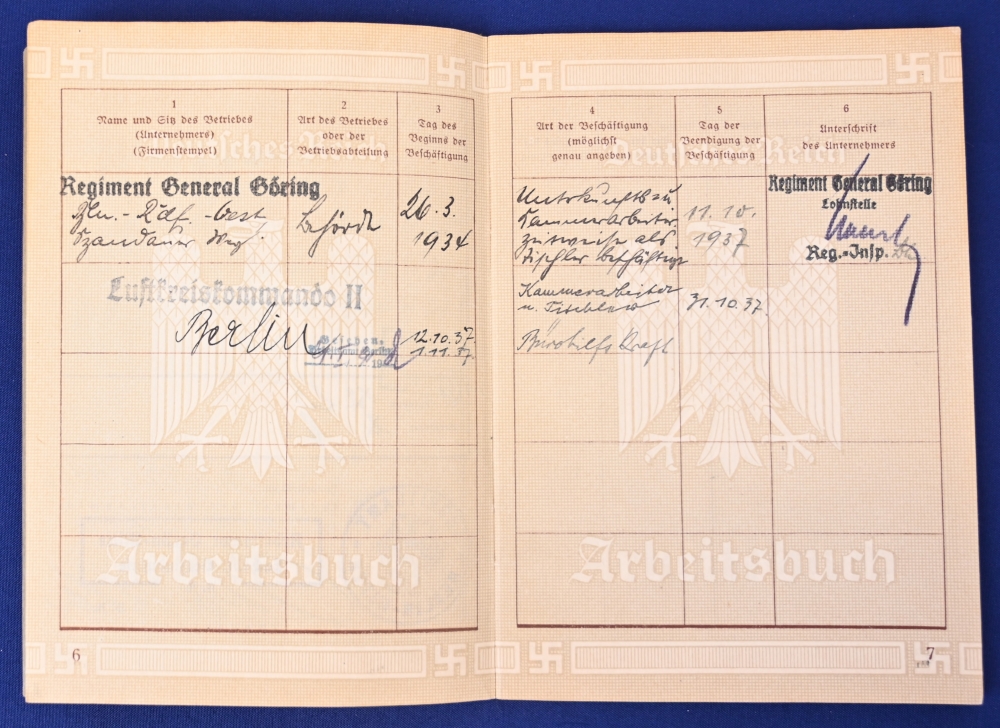 1
Name und Sitz des Betriebes
(Unternehmers)
(Firmenstempel)
2
Art des Betriebes
oder der
Betriebsabteilung
3
Tag des
Beginns der
Beschäftigung
Regiment General Göring
Bln. - Rdf. - West
Spandauer Weg
Behörde
26.3.
1934
Luftkreiskommando II
Berlin
12.10.37
1.11.37.
Arbeitsbuch
6
4
Art der Beschäftigung
(möglichst
genau angeben)
5
Tag der
Beendigung der
Beschäftigung
6
Unterschrift
des Unternehmers
Deutsches Reich
Unterkunfts u
Kammerarbeiter
zeitweise als
Tischler beschäftigt
11.10.
1937
Regiment General Göring
Lohnstelle
Reg.-Insp.
Kammerarbeiter
u. Tischler
31.10.37.
Bürohilfskraft
Arbeitsbuch
7